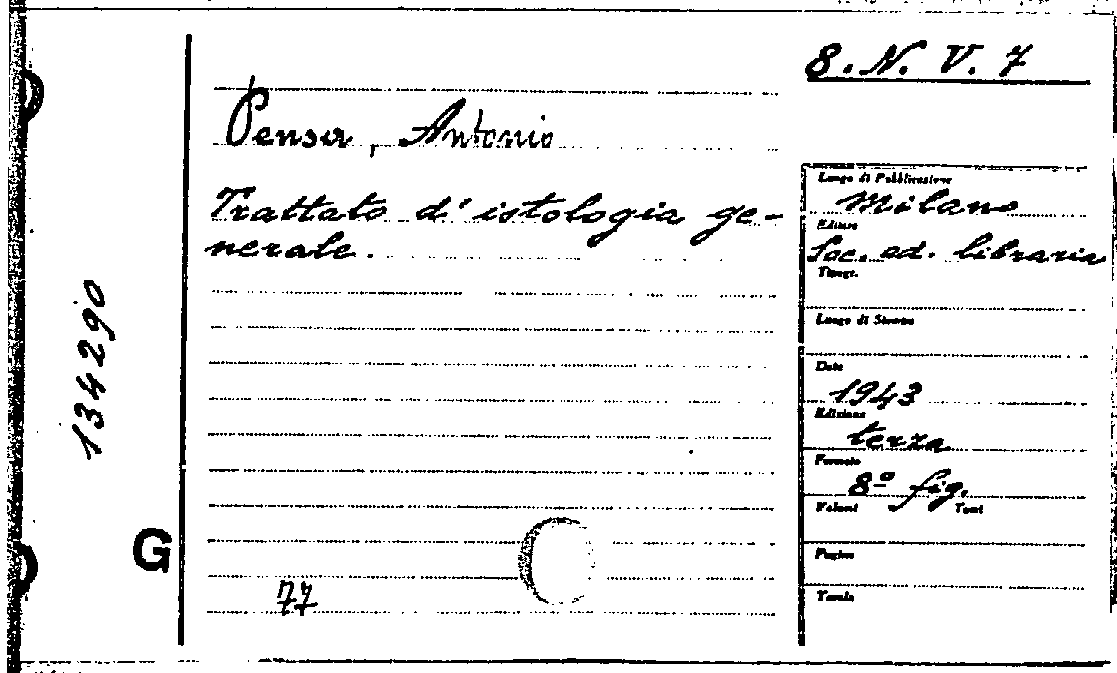 8. N. V. 7
Pensa, Antonio
Trattato d'istologia ge-
nerale.
134290
G
77
Luogo di Pubblicazione
Milano
Editore
Soc. ed. libraria
Tipogr.
Luogo di Stampa
Data
1943
Edizione
terza
Formato
8º fig.
Volumi Tomi
Pagine
Tavole